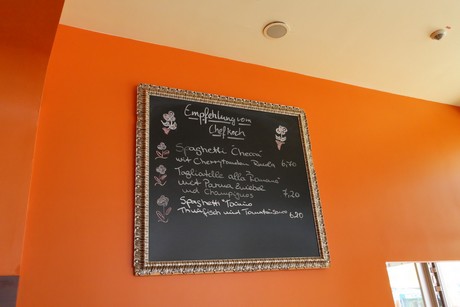 Empfehlung vom
Chefkoch
Spaghetti
mit Cherrytomaten 6,70
Tagliatelle alla Romana
mit Parma Zwiebel
und Champignons 7,20
Spaghetti
Thunfisch und Tomatensauce 6,20